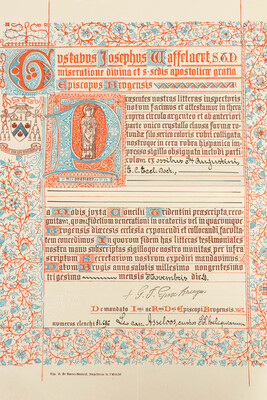 Gustavus Josephus Waffelaert, S.T.D.
miseratione divina et s. sedis apostolicæ gratia
Episcopus Brugensis
Præsentes nostras litteras inspecturis
notum facimus et attestamur in theca
cuprea circulo argenteo et ab anteriore
parte unico crystallo clausa formæ rotundæ
filo serico coloris rubri colligata
nostroque in cera rubra hispanica impresso
sigillo obsignata includi particulam
ex ossibus St Augustini,
E. C. Eccl. Doct.,
a Nobis juxta Concilii Tridentini præscripta, recognitam,
quam fidelium venerationi in oratoriis vel in quacumque
Brugensis dioecesis ecclesia exponendi et collocandi, facultatem
concedimus. In quorum fidem has litteras testimoniales
nostra manu subscriptas sigilloque nostro munitas per infrascriptum
Secretarium nostrum expediri mandavimus.
Datum Brugis anno salutis millesimo nongentesimo
trigesimo mensis Novembris die 4
De mandato Ill.mi ac R.mi D. Episcopi Brugensis.
numerus elenchi Leo can. Asseloos, custos SS. Reliquiarum